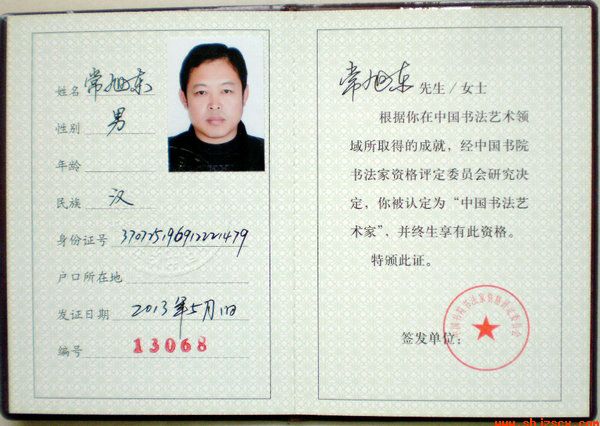 姓名 常旭东
性别 男
年龄
民族 汉
身份证号 370725196912221479
户口所在地
发证日期 2013年5月1日
编号 13068
常旭东 先生/女士
根据你在中国书法艺术领
域所取得的成就，经中国书院
书法家资格评定委员会研究决
定，你被认定为“中国书法艺
术家”，并终生享有此资格。
特颁此证。
中国书院书法家资格评定委员会
签发单位：